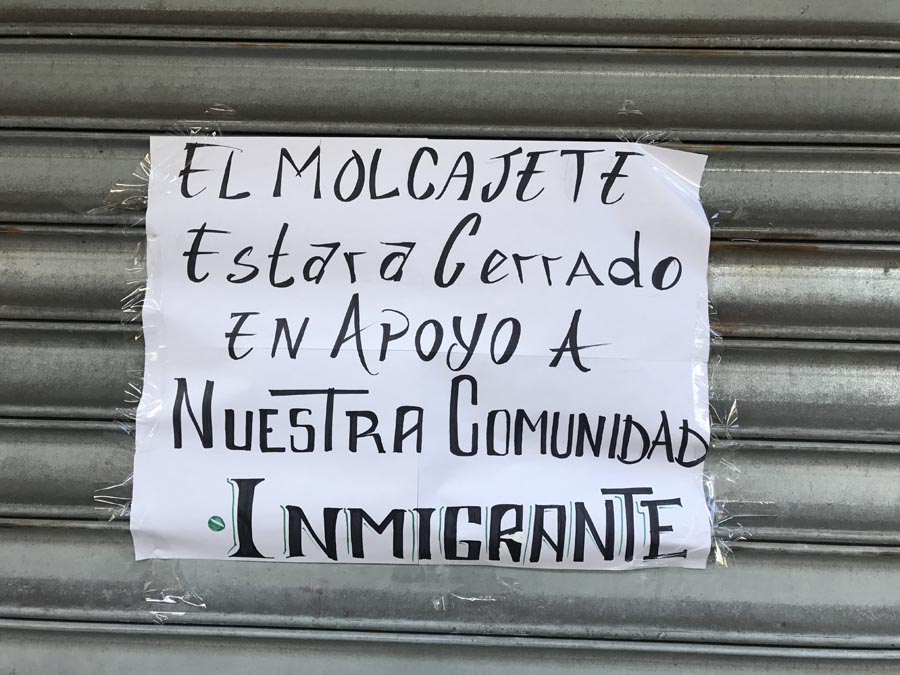 EL MOLCAJETE
Estara Cerrado
EN APOYO A
NUESTRA COMUNIDAD
·INMIGRANTE